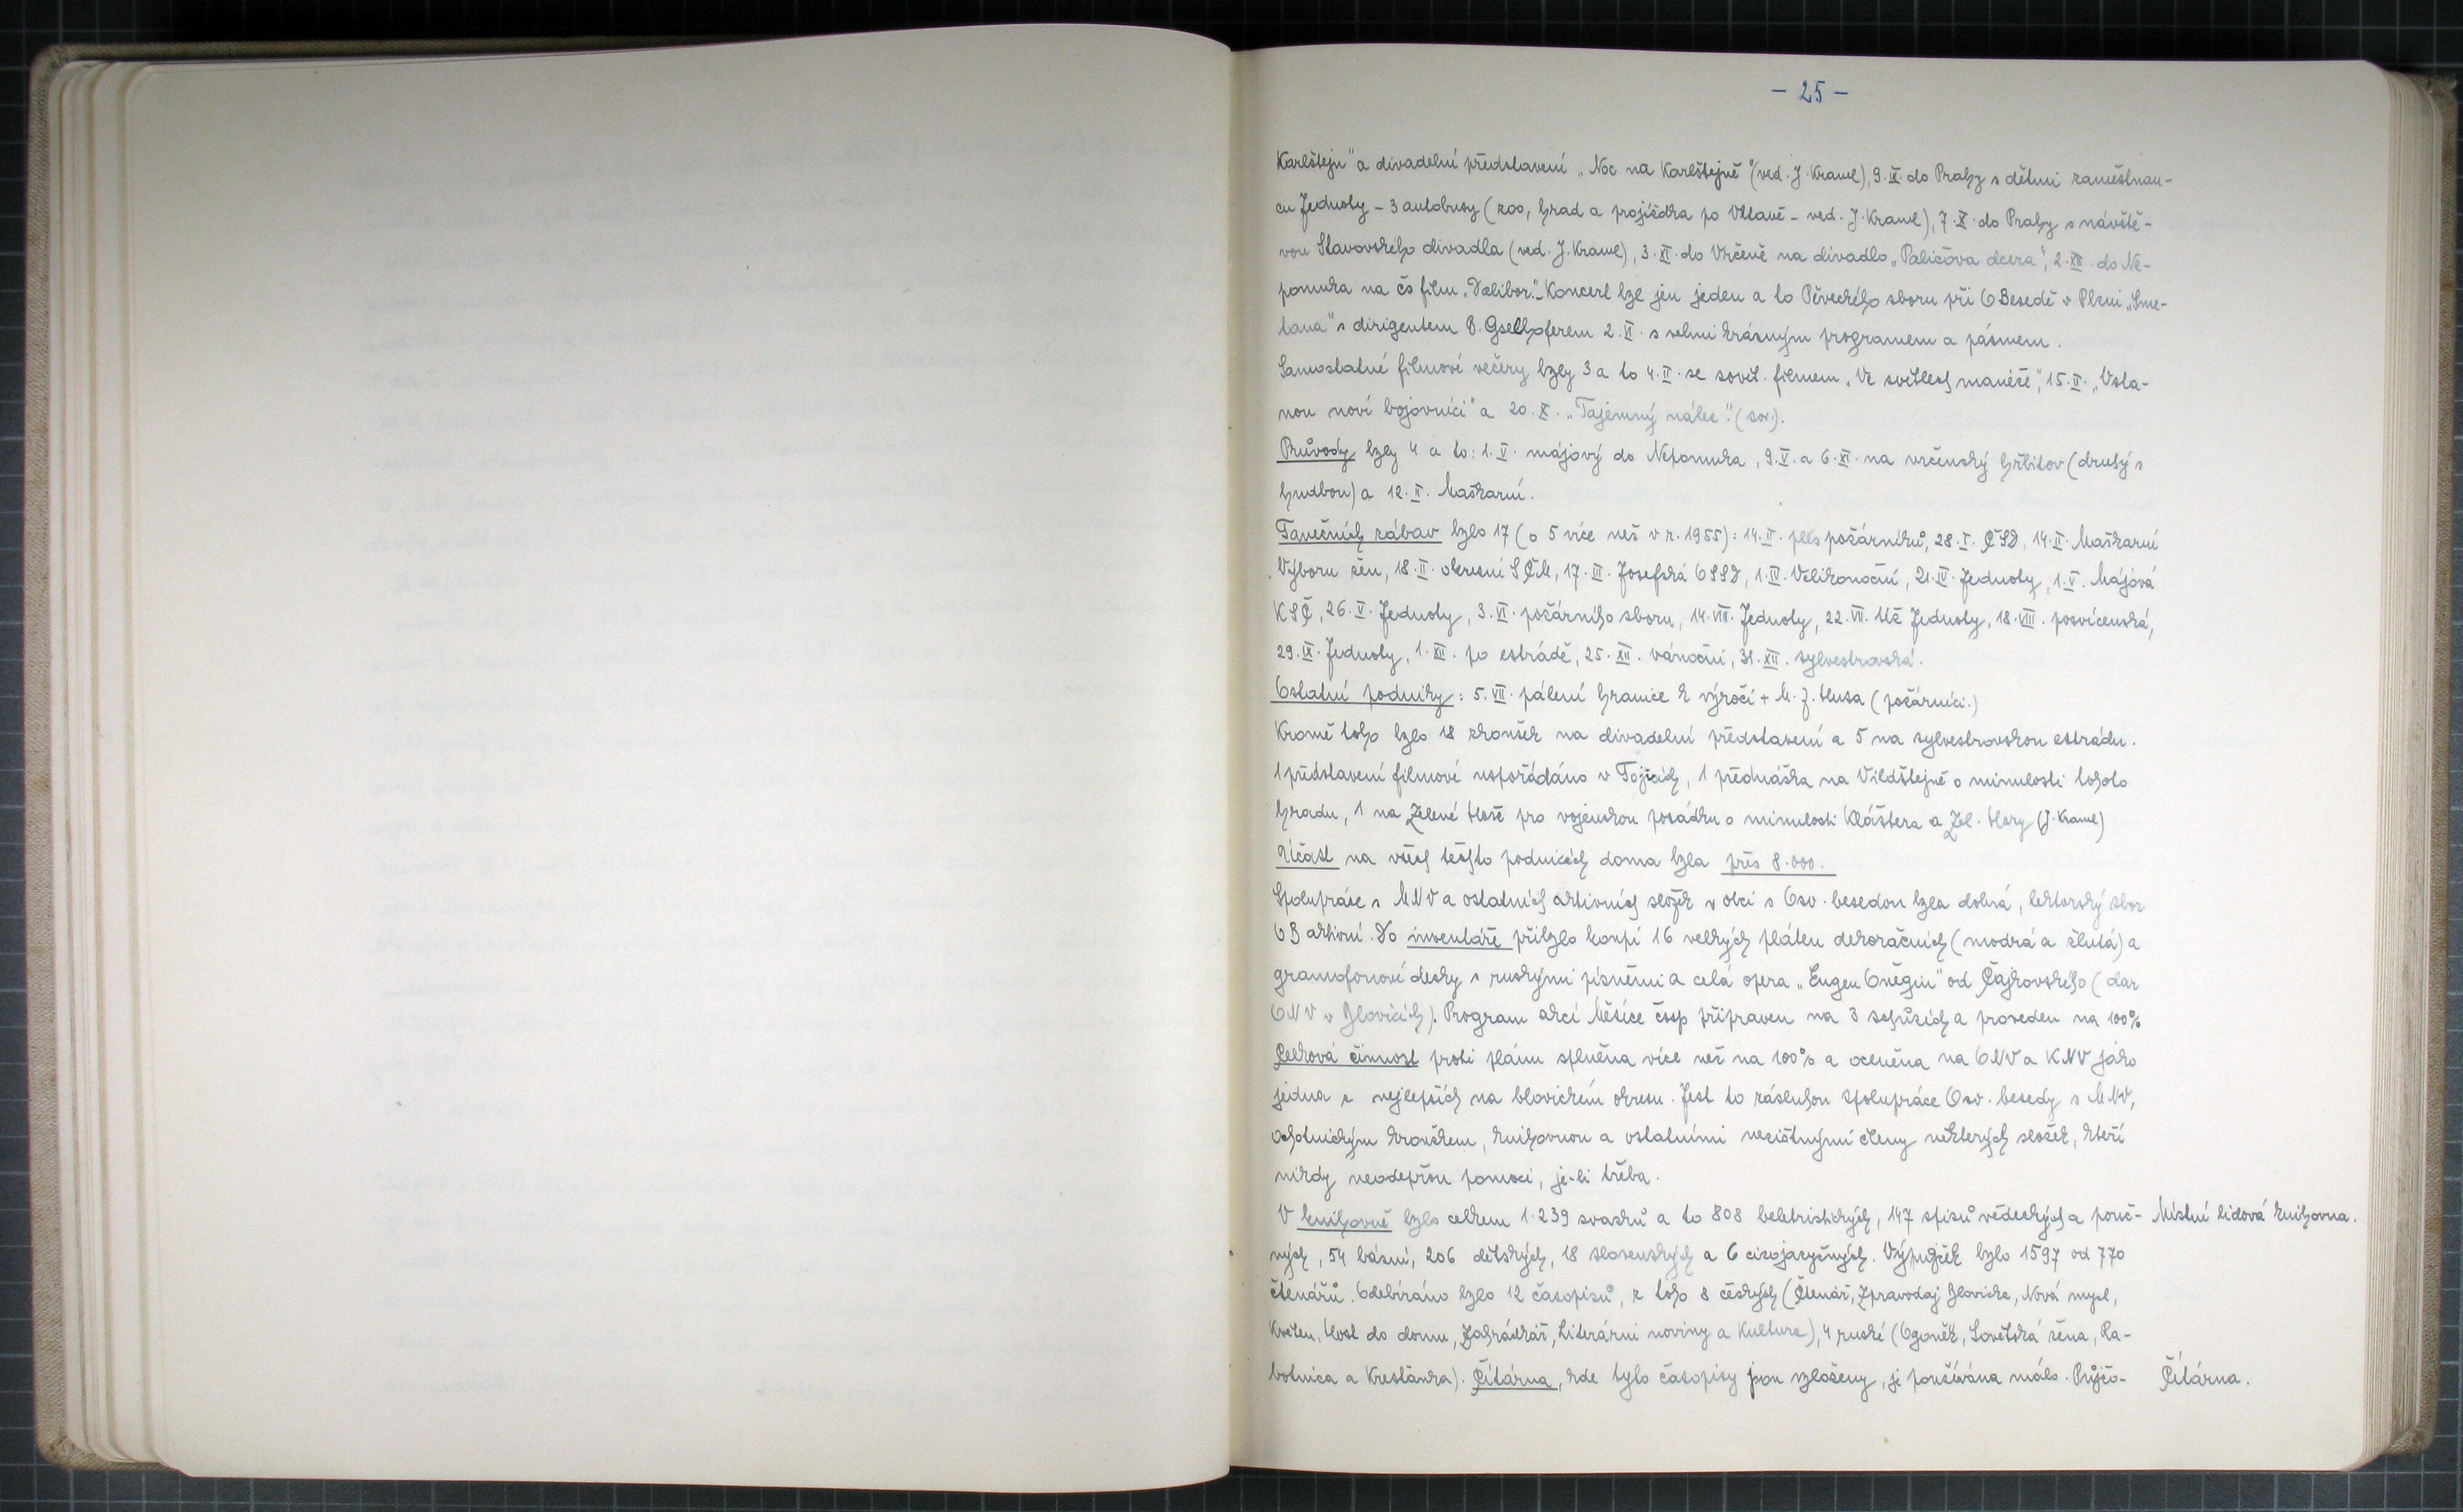 - 25 -
Karlštejn" a divadelní představení „Noc na Karlštejně" (ved. J. Kraml), 9. IX. do Prahy s dětmi zaměstnan-
cu Jednoty - 3 autobusy (zoo, hrad a projíždka po Vltavě - ved. J. Kraml), 7. X. do Prahy s návště-
vou Stavovského divadla (ved. J. Kraml), 3. XI. do Vrčeně na divadlo „Paličova dcera", 2. XII. do Ne-
pomuka na čs film „Dalibor". - Koncert byl jen jeden a to Pěveckého sboru při O Besedě v Plzni „Sme-
tana" s dirigentem B. Gsellhoferem 2. VI. s velmi krásným programem a pásmem.
Samostatné filmové večery byly 3 a to 4. II. se sovět. filmem „Ve světlech manéže", 15. II. „Vsta-
nou noví bojovníci" a 20. X. „Tajemný nález". (sov.).
Průvody byly 4 a to: 1. V. májový do Nepomuka, 9. V. a 6. XI. na vrčenský hřbitov (druhý s
hudbou) a 12. II. Maškarní.
Tanečních zábav bylo 17 (o 5 více než v r. 1955): 14. I. ples požárníků, 28. I. ČSD, 14. II. Maškarní
Výboru žen, 18. II. okresní SČM, 17. III. Josefská OSSD, 1. IV. Velikonoční, 21. IV. Jednoty, 1. V. Májová
KSČ, 26. V. Jednoty, 3. VI. požárního sboru, 14. VII. Jednoty, 22. VII. též Jednoty, 18. VIII. posvícenská,
29. IX. Jednoty, 1. XII. po estrádě, 25. XII. vánoční, 31. XII. sylvestrovská.
Ostatní podniky: 5. VII. pálení hranice k výročí + M. J. Husa (požárníci.)
Kromě toho bylo 18 zkoušek na divadelní představení a 5 na sylvestrovskou estrádu.
1 představení filmové uspořádáno v Tojicích, 1 přednáška na Vildštejně o minulosti tohoto
hradu, 1 na Zelené Hoře pro vojenskou posádku o minulosti Kláštera a Zel. Hory (J. Kraml)
Účast na všech těchto podnicích doma byla přes 8.000.
Spolupráce s MNV a ostatních aktivních složek v obci s Osv. besedou byla dobrá, lektorský sbor
OB aktivní. Do inventáře přibylo koupí 16 velkých pláten dekoračních (modrá a žlutá) a
gramofonové desky s ruskými písněmi a celá opera „Eugen Oněgin" od Čajkovského (dar
ONV v Blovicích). Program akcí Měsíce čssp připraven na 3 schůzích a proveden na 100%
Celková činnost proti plánu splněna více než na 100% a oceněna na ONV a KNV jako
jedna z nejlepších na blovickém okresu. Jest to zásluhou spolupráce Osv. besedy s MNV,
ochotnickým kroužkem, knihovnou a ostatními nezištnými členy některých složek, kteří
nikdy neodepřou pomoci, je-li třeba.
V knihovně bylo celkem 1.239 svazků a to 808 beletristických, 147 spisů vědeckých a pouč- Místní lidová knihovna.
ných, 54 básní, 206 dětských, 18 slovenských a 6 cizojazyčných. Výpujček bylo 1597 od 770
čtenářů. Odebíráno bylo 12 časopisů, z toho 8 českých (Čtenář, Zpravodaj Blovicka, Nová mysl,
Květen, Host do domu, Zahrádkář, Literární noviny a Kultura), 4 ruské (Ogoněk, Sovětská žena, Ra-
botnica a Krestánka). Čítárna, kde tyto časopisy jsou vyloženy, je používána málo. Půjčo- Čítárna.